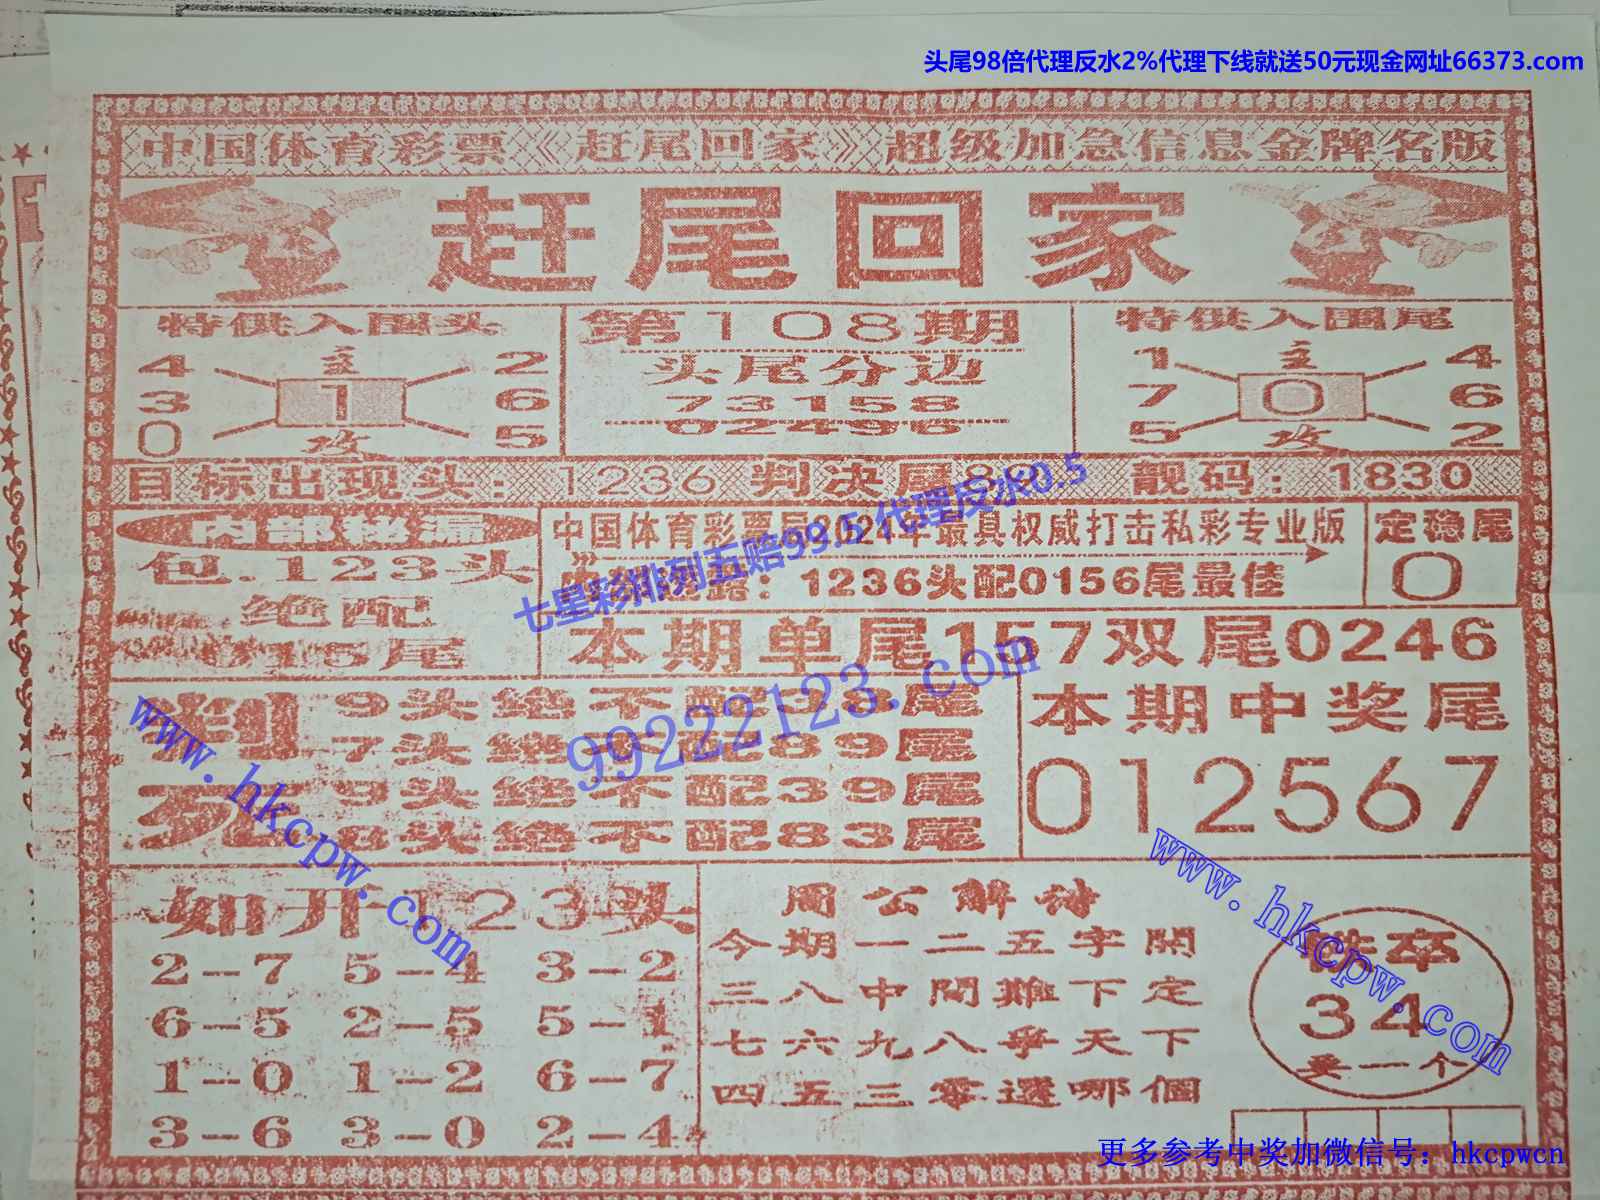 头尾98倍代理反水2%代理下线就送50元现金网址66373.com
中国体育彩票《赶尾回家》超级加急信息金牌名版
赶尾回家
特供入围头
4 主 2
3 1 6
0 攻 5
第108期
头尾分边
73158
02496
特供入围尾
1 主 4
7 0 6
5 攻 2
目标出现头：1236 判决尾89 靓码：1830
内部秘漏
包.123头
绝配
015尾
中国体育彩票局2021年最具权威打击私彩专业版
：1236头配0156尾最佳
定稳尾
0
七星彩排列五赔99.5代理反水0.5
本期单尾157双尾0246
99222123.com
判死
9头绝不配93尾
7头绝不配89尾
9头绝不配39尾
8头绝不配83尾
本期中奖尾
012567
www.hkcpw.com
如开123头
2-7 5-4 3-2
6-5 2-5 5-1
1-0 1-2 6-7
3-6 3-0 2-4
周公解诗
今期一二五字開
三八中間難下定
七六九八爭天下
四五三零選哪個
www.hkcpw.com
卒
34
买一个
更多参考中奖加微信号：hkcpwcn